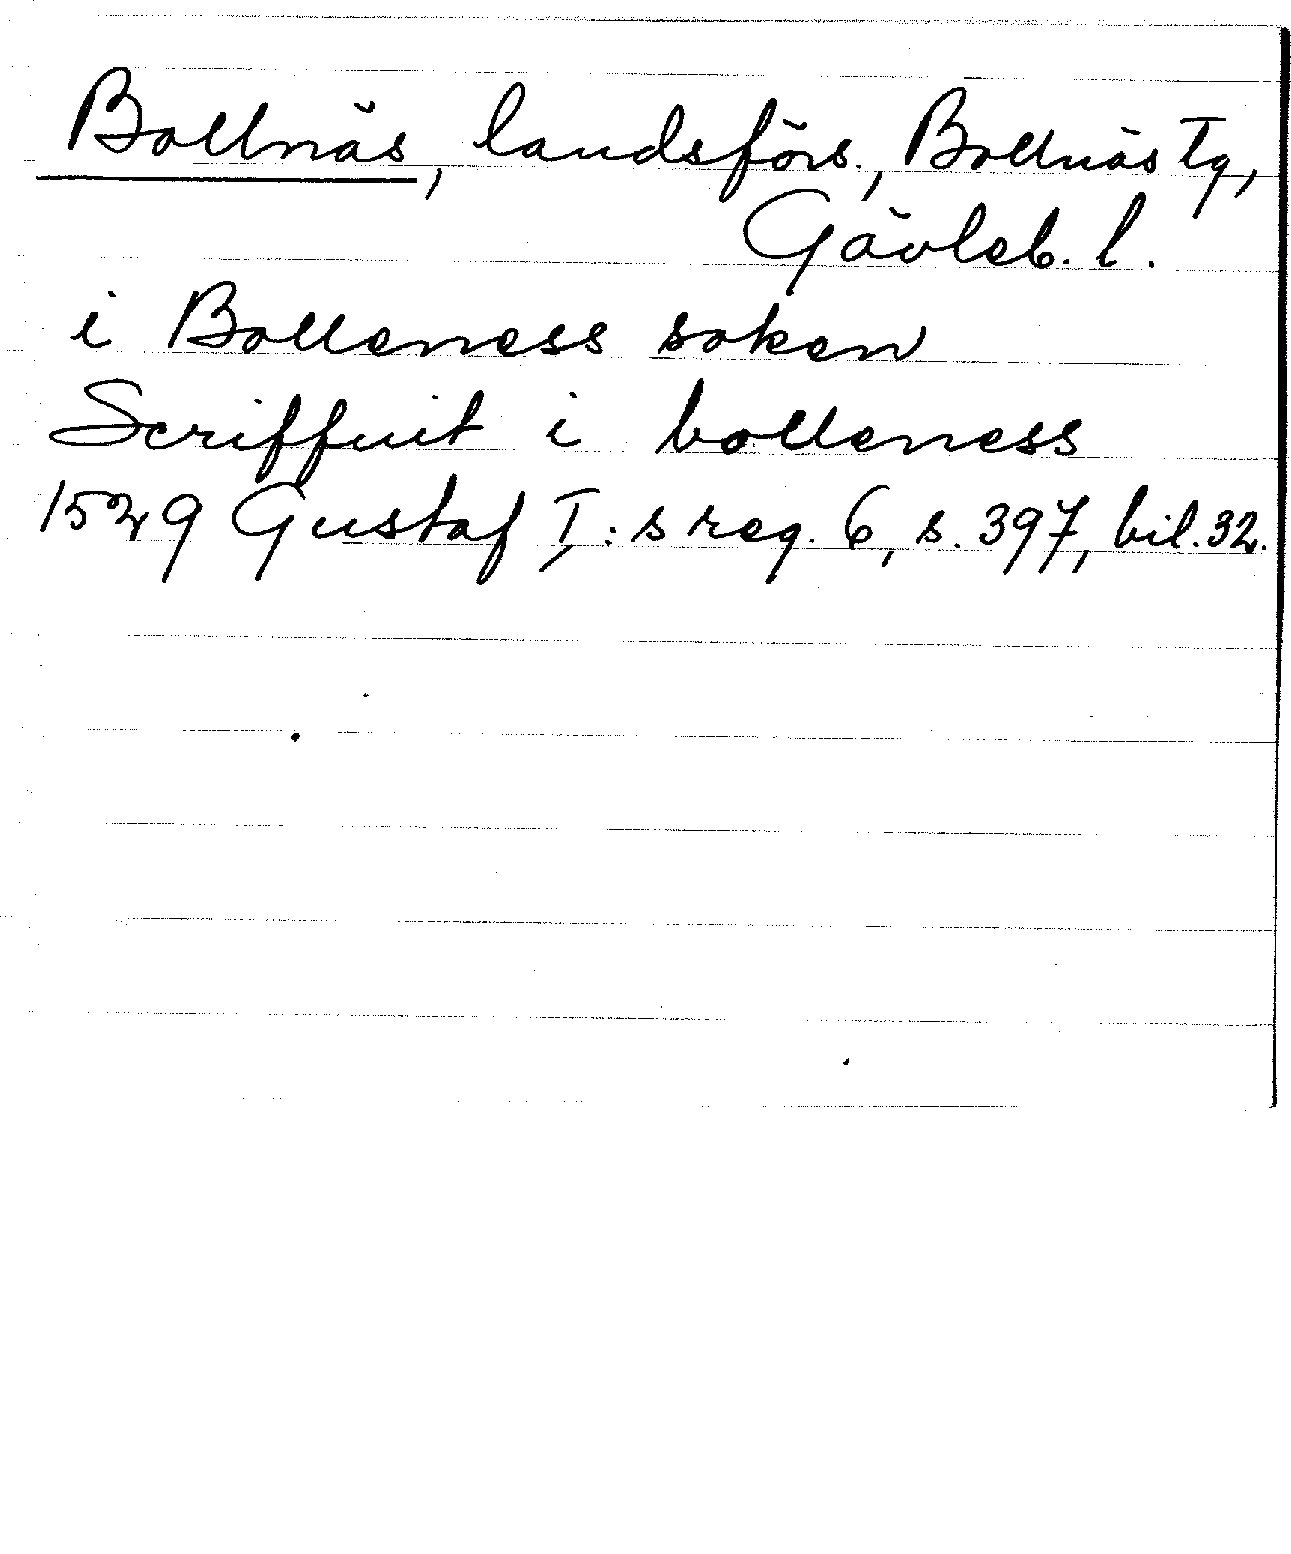 Bollnäs, landsförs., Bollnäs Tg,
Gävleb. l.
i Bolleness soken
Scriffuit i bolleness
1529 Gustaf I:s reg. 6, s. 397, bil. 32.